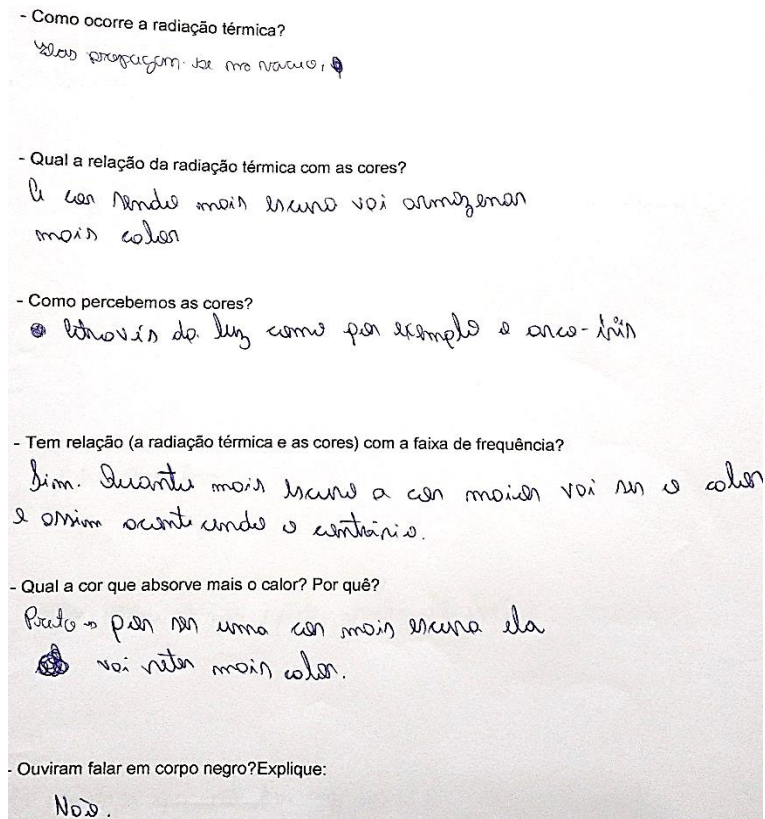 - Como ocorre a radiação térmica?
Elas propagam-se no vacuo,
- Qual a relação da radiação térmica com as cores?
A cor sendo mais escura vai armazenar
mais calor
- Como percebemos as cores?
Através da luz como por exemplo o arco-íris
- Tem relação (a radiação térmica e as cores) com a faixa de frequência?
Sim. Quanto mais escuro a cor maior vai ser o calor
e assim acontecendo o contrário.
- Qual a cor que absorve mais o calor? Por quê?
Preto → por ser uma cor mais escura ela
vai reter mais calor.
- Ouviram falar em corpo negro?Explique:
Não.